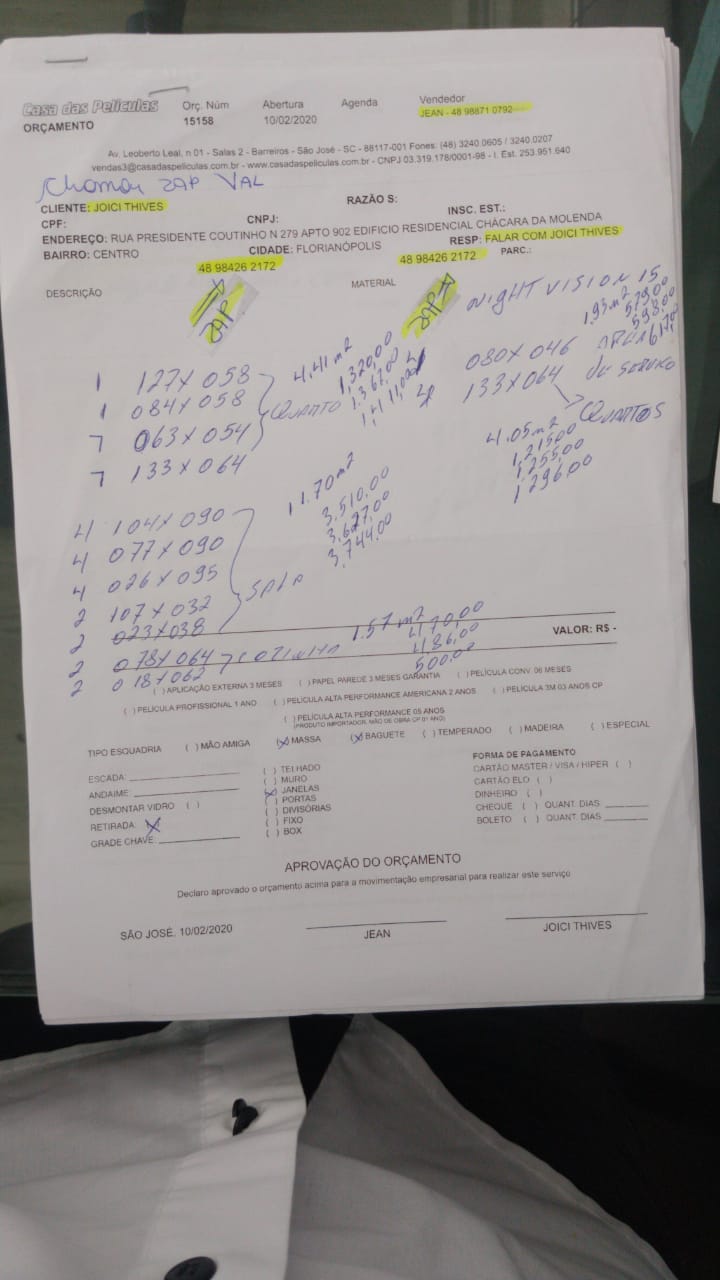 Casa das Películas
ORÇAMENTO
Orç. Núm
15158
Abertura
10/02/2020
Agenda
Vendedor
JEAN - 48 98871 0792
Av. Leoberto Leal, n 01 - Salas 2 - Barreiros - São José - SC - 88117-001 Fones: (48) 3240.0605 / 3240.0207
vendas3@casadaspeliculas.com.br - www.casadaspeliculas.com.br - CNPJ 03.319.178/0001-98 - I. Est. 253.951.640
Chamar ZAP VAL
CLIENTE: JOICI THIVES
RAZÃO S:
CPF:
CNPJ:
INSC. EST.:
ENDEREÇO: RUA PRESIDENTE COUTINHO N 279 APTO 902 EDIFICIO RESIDENCIAL CHÁCARA DA MOLENDA
BAIRRO: CENTRO
CIDADE: FLORIANÓPOLIS
RESP: FALAR COM JOICI THIVES
48 98426 2172
48 98426 2172
PARC.:
DESCRIÇÃO
MATERIAL
NIGHT VISION 15
1 127X058
1 084X058
7 063X054
7 133X064
QUARTO
4.41m2
1,320,00
1.367,00
080X046
133X064
1,93m2
579,00
598,00
DE SERVIÇO
QUARTOS
4.05m2
1,215,00
1,255,00
1,296,00
4 104X090
4 077X090
4 026X095
2 107X032
2 023X038
SALA
11.70m2
3,510,00
3,627,00
3,744,00
2 078X064
2 018X062
COZINHA
1.57m2
470,00
486,00
500,00
VALOR: R$ -
( ) APLICAÇÃO EXTERNA 3 MESES ( ) PAPEL PAREDE 3 MESES GARANTIA ( ) PELÍCULA CONV. 06 MESES
( ) PELÍCULA PROFISSIONAL 1 ANO ( ) PELÍCULA ALTA PERFORMANCE AMERICANA 2 ANOS ( ) PELÍCULA 3M 03 ANOS CP
( ) PELÍCULA ALTA PERFORMANCE 05 ANOS
(PRODUTO IMPORTADOR, MÃO DE OBRA CP 01 ANO)
TIPO ESQUADRIA ( ) MÃO AMIGA (X) MASSA (X) BAGUETE ( ) TEMPERADO ( ) MADEIRA ( ) ESPECIAL
ESCADA:
ANDAIME:
DESMONTAR VIDRO ( )
RETIRADA: X
GRADE CHAVE:
( ) TELHADO
( ) MURO
(X) JANELAS
( ) PORTAS
( ) DIVISÓRIAS
( ) FIXO
( ) BOX
FORMA DE PAGAMENTO
CARTÃO MASTER / VISA / HIPER ( )
CARTÃO ELO ( )
DINHEIRO ( )
CHEQUE ( ) QUANT. DIAS
BOLETO ( ) QUANT. DIAS
APROVAÇÃO DO ORÇAMENTO
Declaro aprovado o orçamento acima para a movimentação empresarial para realizar este serviço
SÃO JOSÉ. 10/02/2020
JEAN
JOICI THIVES